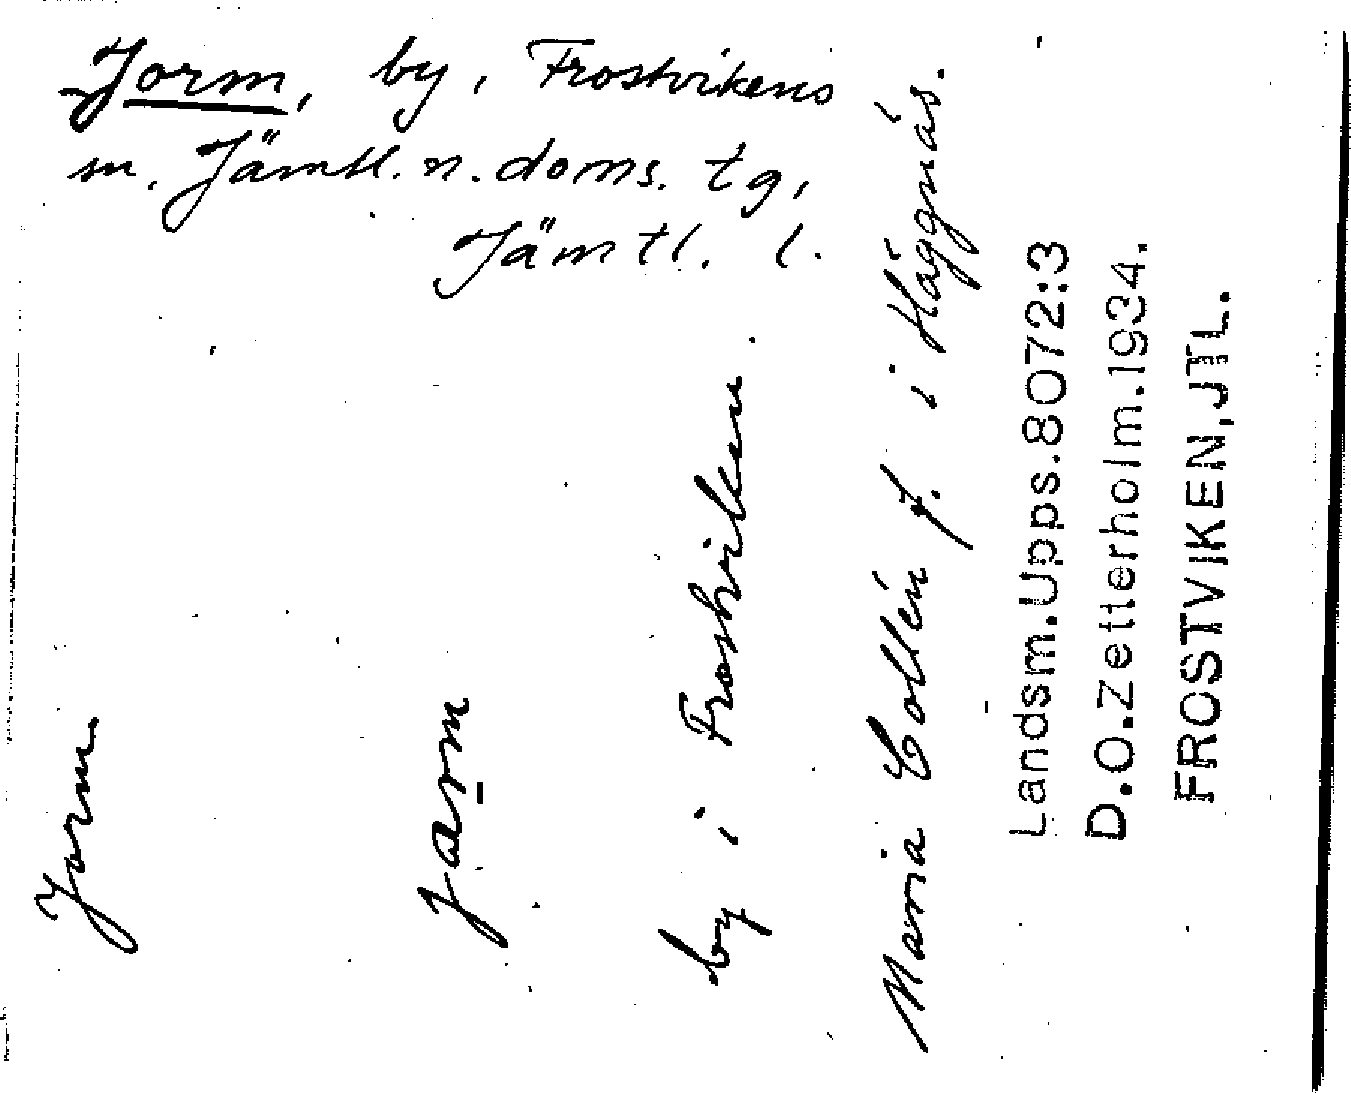 Jorm, by, Frostvikens
sn. Jämtl. n. doms. tg,
Jämtl. l.
Jorm
jarm
by i Frostviken.
Maria Collén f. i Häggnäs.
Landsm.Upps.8072:3
D.O.Zetterholm.1934.
FROSTVIKEN,JTL.